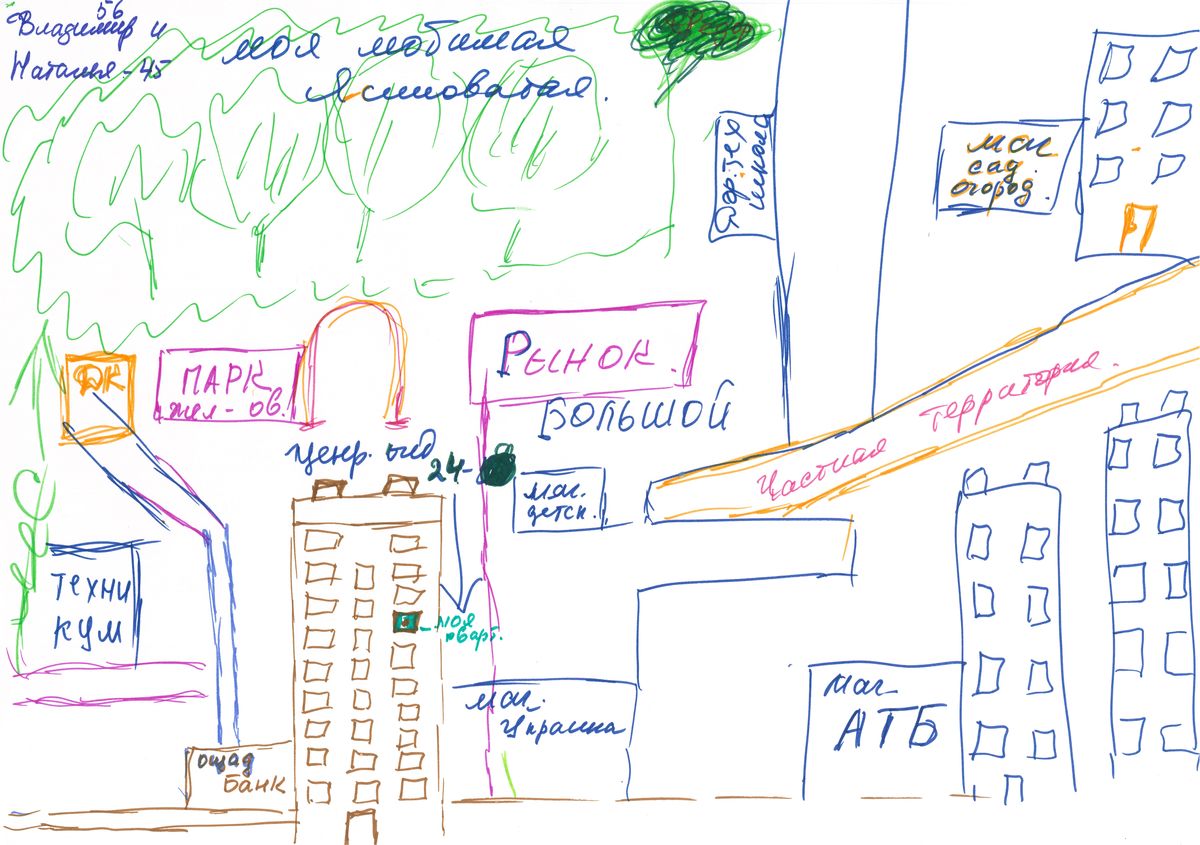 56
Владимир и
Наталья - 45
моя любимая
Ясиноватая.
дор. тех
школа
маг
сад.
огород.
ДК
ПАРК
жел-ов.
РЫНОК.
БОЛЬШОЙ
Частная территория.
24-
маг.
детск.
ЛЕС
ТЕХНИ
КУМ
моя
кварт.
маг.
Украина
маг
АТБ
ощад
Банк